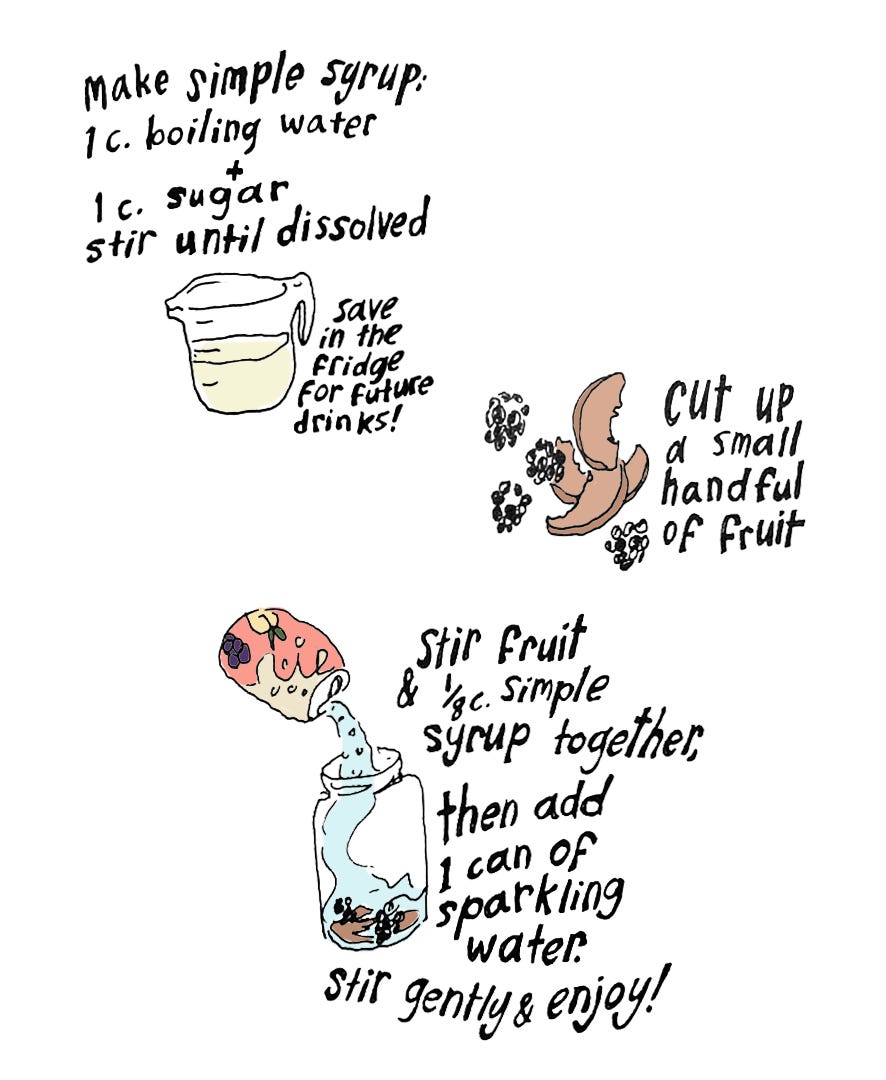 make simple syrup:
1 c. boiling water
+
1 c. sugar
stir until dissolved
save
in the
fridge
for future
drinks!
cut up
a small
handful
of fruit
stir fruit
& 1/8 c. simple
syrup together,
then add
1 can of
sparkling
water.
stir gently & enjoy!